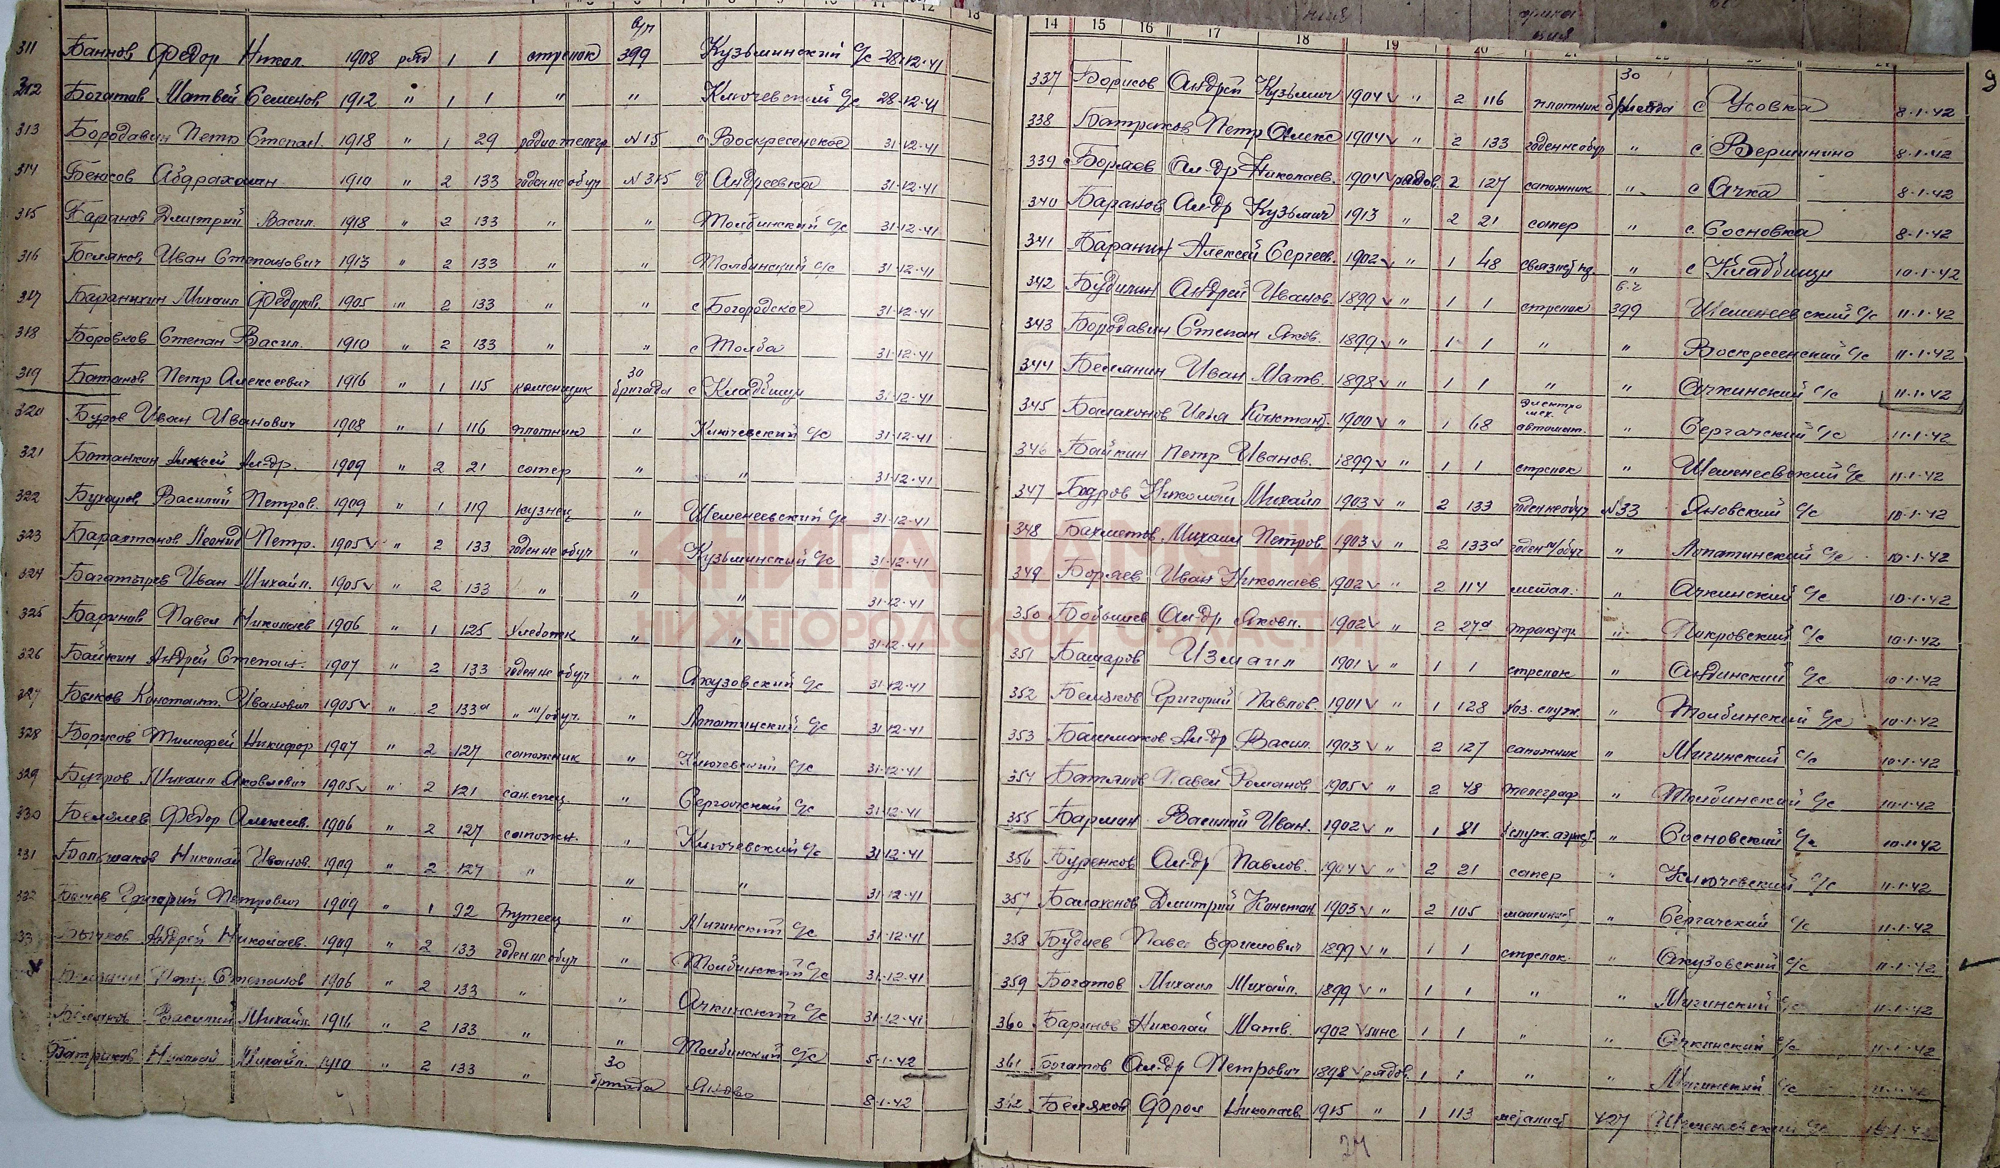 в/п
311 Баннов Федор Никол. 1908 ряд 1 1 стрелок 399 Кузьминский с/с 28·12·41
312 Богатов Матвей Семенов 1912 " 1 1 " " Ключевский с/с 28·12·41
313 Бородавин Петр Степан. 1918 " 1 29 радио-телегр. №15 с Воскресенское 31·12·41
314 Абдрахман 1910 " 2 133 годен не обуч №315 д Андреевка 31·12·41
315 Баранов Дмитрий Васил. 1918 " 2 133 " " Толбинский с/с 31·12·41
316 Беляков Иван Степанович 1913 " 2 133 " " Толбинский с/с 31·12·41
317 Михаил Федоров. 1905 " 2 133 " " с Богородское 31·12·41
318 Боровков Степан Васил. 1910 " 2 133 " " с Толба 31·12·41
319 Батанов Петр Алексеевич 1916 " 1 115 каменщик 30 бригада с Кладбищи 31·12·41
320 Буров Иван Иванович 1908 " 1 116 плотник " Ключевский с/с 31·12·41
321 Алексей Ал-др. 1909 " 2 21 сапер " " 31·12·41
322 Василий Петров. 1909 " 1 119 кузнец " Шеменеевский с/с 31·12·41
323 Леонид Петр. 1905 v " 2 133 годен не обуч " Кузьминский с/с 31·12·41
324 Багатырев Иван Михайл. 1905 v " 2 133 " " " 31·12·41
325 Баринов Павел Николаев 1906 " 1 125 хлебопек " " 31·12·41
326 Байкин Андрей Степан. 1907 " 2 133 годен не обуч " Акузовский с/с 31·12·41
327 Быков Констант. Иванович 1905 v " 2 133а " " Лопатинский с/с 31·12·41
328 Борисов Тимофей Никифор 1907 " 2 127 сапожник " Ключевский с/с 31·12·41
329 Бугров Михаил Яковлевич 1905 v " 2 121 " Сергачский с/с 31·12·41
330 Федор Алексеев. 1906 " 2 127 сапожн. " Ключевский с/с 31·12·41
331 Большаков Николай Иванов. 1909 " 2 127 " " " 31·12·41
332 Бычев Григорий Петрович 1909 " 1 92 путеец " Мигинский с/с 31·12·41
33 Андрей Николаев. 1909 " 2 133 годен не обуч " Толбинский с/с 31·12·41
Петр Степанов 1906 " 2 133 " " Ачкинский с/с 31·12·41
Беляков Василий Михайл. 1916 " 2 133 " " Толбинский с/с 5·1·42
Батраков Николай Михайл. 1910 " 2 133 " 30 бригада Яново 8·1·42
14 15 16 17 18 19 20
337 Борисов Андрей Кузьмич 1904 v " 2 116 плотник 30 бригада с Усовка 8·1·42
338 Батраков Петр Алекс 1904 v " 2 133 годен не обуч " с Вершинино 8·1·42
339 Боряев Ал-др Николаев. 1904 v рядов. 2 127 сапожник " с Ачка 8·1·42
340 Баранов Ал-др Кузьмич 1913 " 2 21 сапер " с. Сосновка 8·1·42
341 Баранин Алексей Сергеев. 1902 v " 1 48 " с Кладбищи 10·1·42
342 Андрей Иванов. 1899 v " 1 1 стрелок в.ч 399 Шеменеевский с/с 11·1·42
343 Бородавин Степан Яков. 1899 v " 1 1 " " Воскресенский с/с 11·1·42
344 Белянин Иван Матв. 1898 v " 1 1 " " Ачкинский с/с 11·1·42
345 Балахонов Илья Констант. 1900 v " 1 68 электро мех. автомат. " Сергачский с/с 11·1·42
346 Байкин Петр Иванов. 1899 v " 1 1 стрелок " Шеменеевский с/с 11·1·42
347 Бодров Николай Михайл 1903 v " 2 133 годен не обуч №33 Яновский с/с 10·1·42
348 Бахметов Михаил Петров 1903 v " 2 133а годен н/обуч " Лопатинский с/с 10·1·42
349 Боряев Иван Николаев 1902 v " 2 114 " Ачкинский с/с 10·1·42
350 Ал-др Яковл. 1902 v " 2 27а трактор. " Покровский с/с 10·1·42
351 Башаров Измаил 1901 v " 1 1 стрелок " Андинский с/с 10·1·42
352 Беляков Григорий Павлов. 1901 v " 1 128 хоз. служ. " Толбинский с/с 10·1·42
353 Башмаков Ал-др Васил. 1903 v " 2 127 сапожник " Мигинский с/с 10·1·42
354 Батанов Павел Романов 1905 v " 2 48 телеграф. " Толбинский с/с 10·1·42
355 Бармин Василий Иван. 1902 v " 1 81 " Сосновский с/с 10·1·42
356 Буренков Ал-др Павлов. 1904 v " 2 21 сапер " Ключевский с/с 11·1·42
357 Балахонов Дмитрий Констан 1903 v " 2 105 машинист " Сергачский с/с 11·1·42
358 Будаев Павел Ефимович 1899 v " 1 1 стрелок " Акузовский с/с 11·1·42
359 Богатов Михаил Михайл. 1899 v " 1 1 " " Мигинский с/с 11·1·42
360 Баринов Николай Матв. 1902 v 1 1 " " Ачкинский с/с 11·1·42
361 Богатов Ал-др Петрович 1898 v рядов. 1 1 " " Мигинский с/с
362 Беляков Фрол Николаев 1915 " 1 113 427 Шеменеевский с/с
КНИГА ПАМЯТИ
НИЖЕГОРОДСКОЙ ОБЛАСТИ